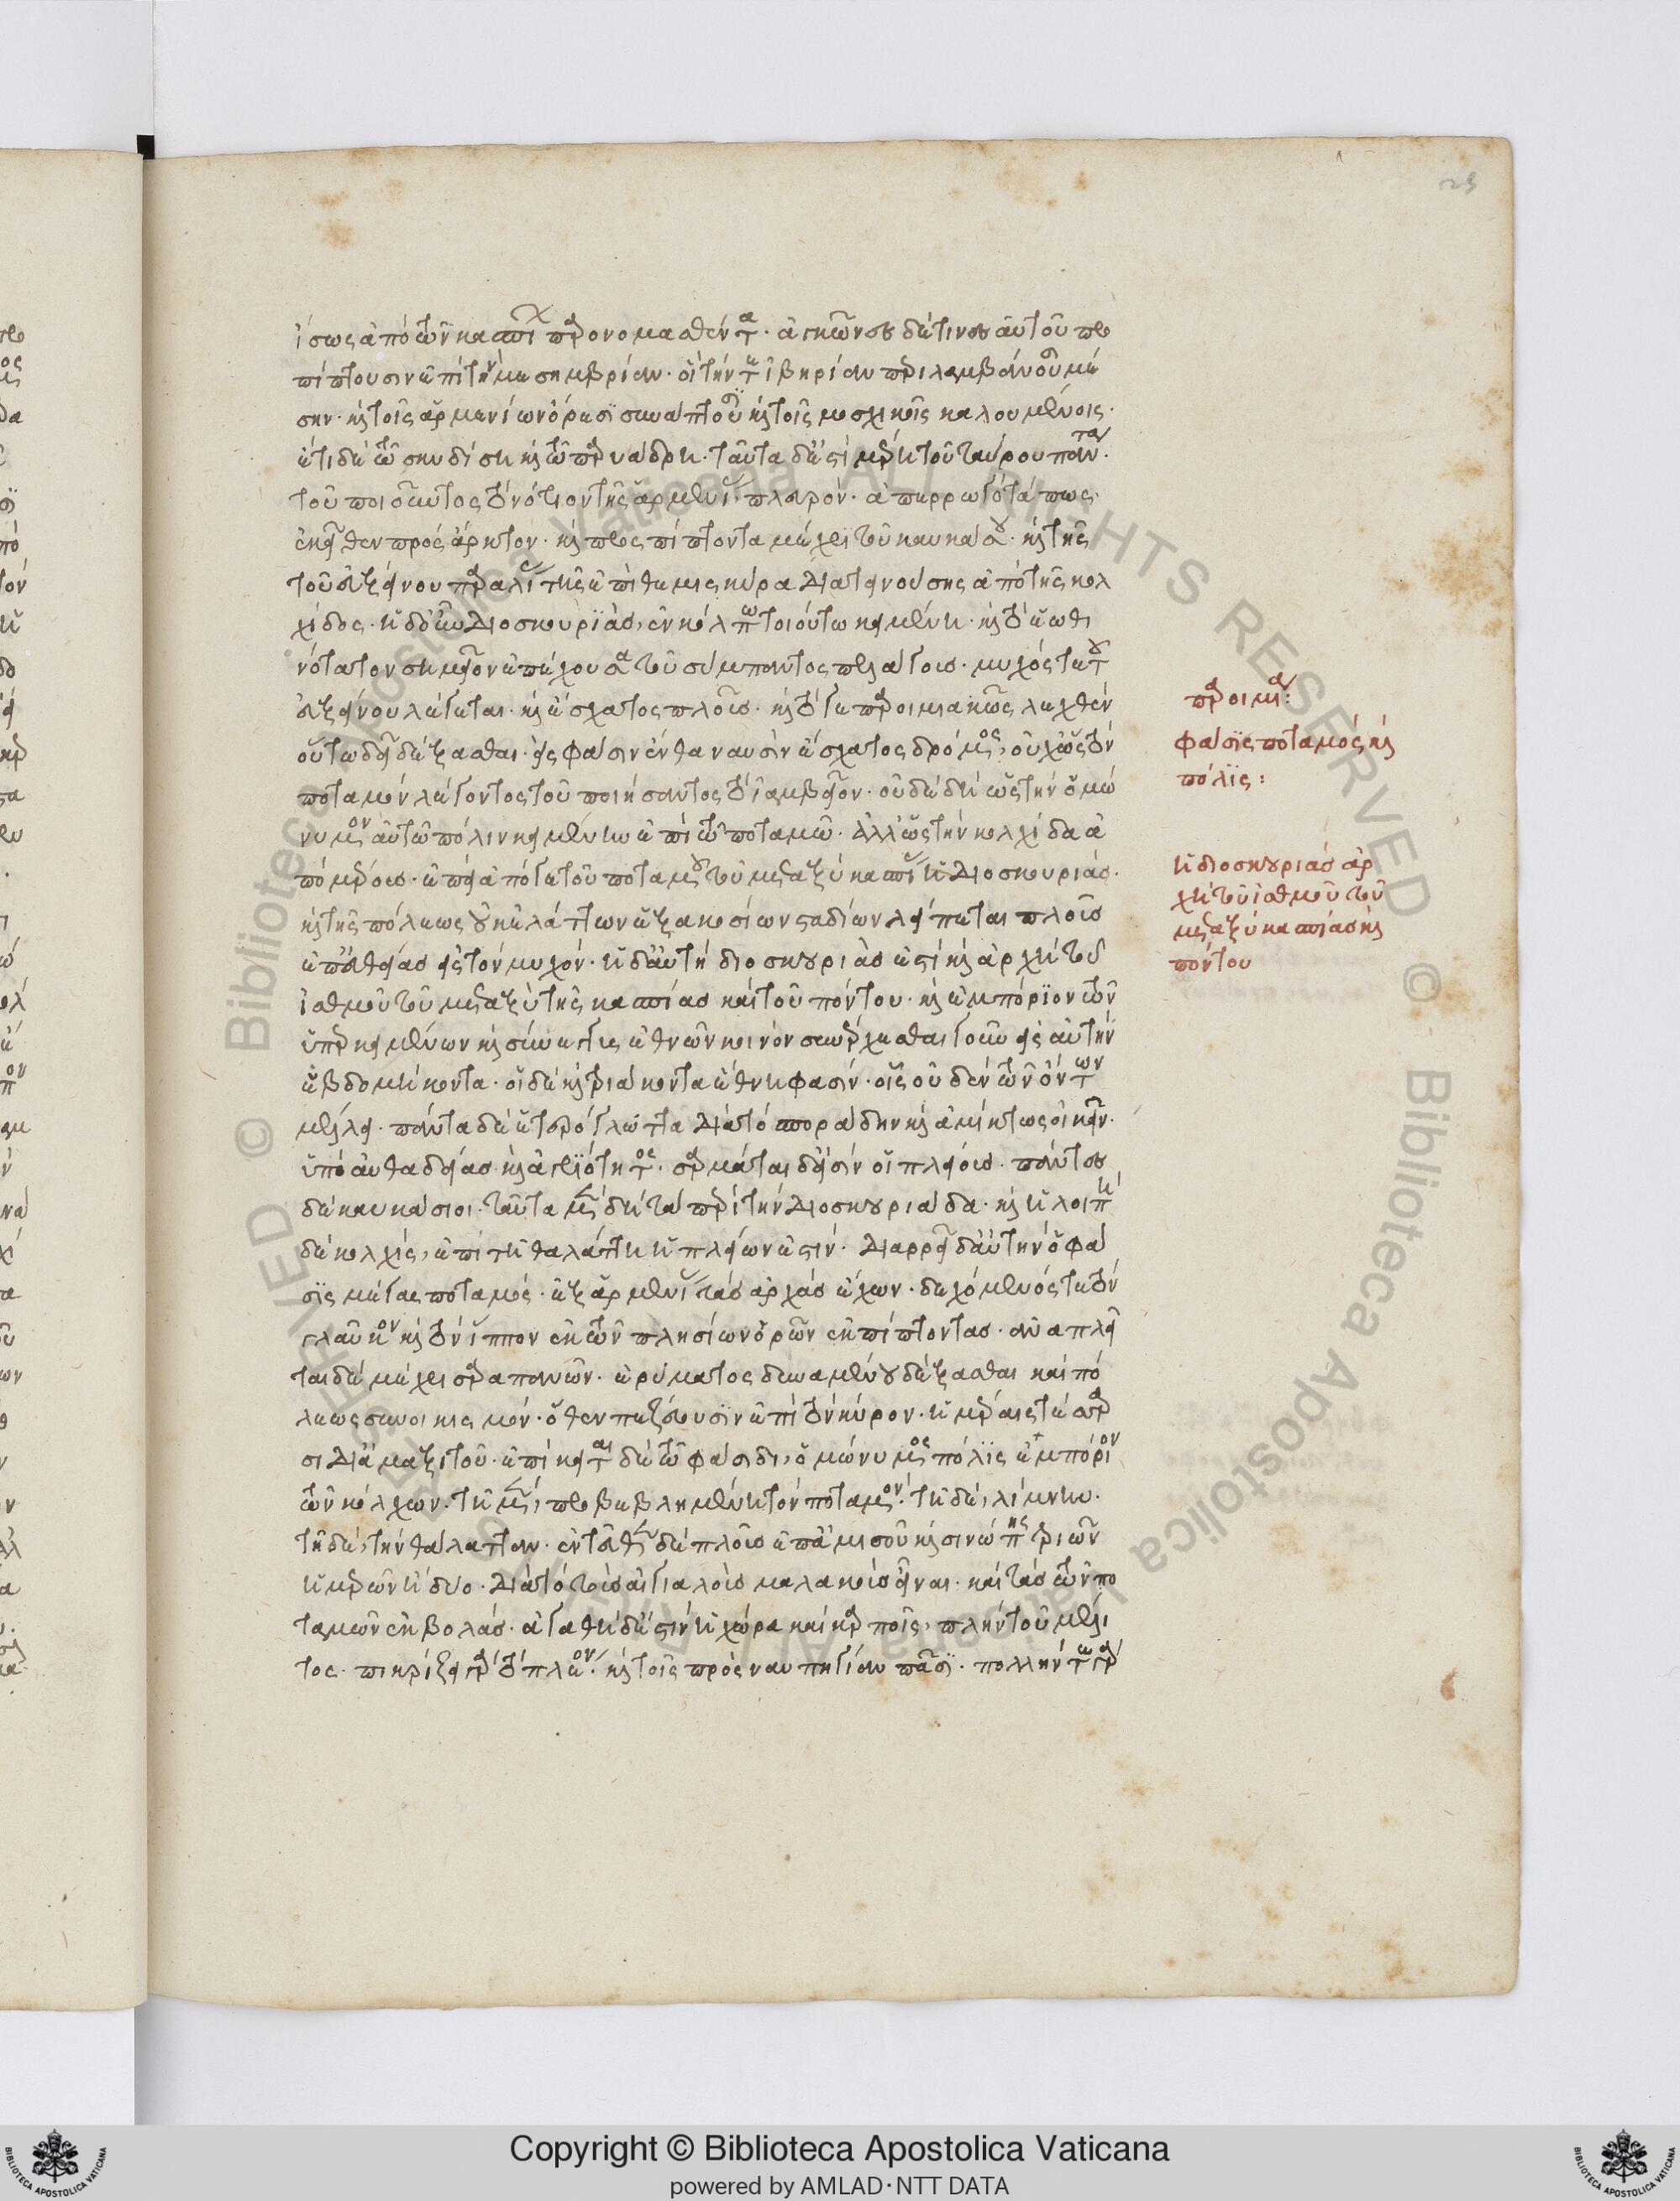 ἴσως ἀπὸ τῶν κασπί παρονομασθέντα· ἀγκῶνες δέ τινες αὐτοῦ προ
πίπτουσιν ἐπὶ τὴν μεσημβρίαν· οἳ τήν τε ἰβηρίαν περιλαμβάνουσι μέ
σην· καὶ τοῖς ἀρμενίων ὄρεσϊ συνάπτουσι καὶ τοῖς μοσχικοῖς καλουμένοις·
ἔτι δὲ τῶ σκυδίση καὶ τῶ παρυάδρη· ταῦτα δ' ἐστὶ μέρη τοῦ ταύρου πάντα·
τοῦ ποιοῦντος τὸ νότιον τῆς ἀρμενί πλευρόν· ἀπερρωγότα πως
ἐκεῖθεν πρὸς ἄρκτον· καὶ προσπίπτοντα μέχρι τοῦ καυκάσου· καὶ τῆς
τοῦ εὐξείνου παραλί τῆς ἐπὶ θεμισκύρα διατεινούσης ἀπὸ τῆς κολ
χίδος· ἡ δ' οὖν διοσκουρϊὰς, ἐν κόλπω τοιούτω κειμένη· καὶ τὸ ἑωθι
νότατον σημεῖον ἐπέχουσα τοῦ σύμπαντος πελάγους· μυχός τε τοῦ
εὐξείνου λέγεται· καὶ ἔσχατος πλοῦς· καὶ τό γε παροιμιακῶς λεχθὲν
οὕτω δεῖ δέξασθαι· εἰς φάσιν ἔνθα ναυσὶν ἔσχατος δρόμος, οὐχ ὡς τὸν
ποταμὸν λέγοντος τοῦ ποιήσαντος τὸ ἰαμβεῖον· οὐδὲ δὴ ὡς τὴν ὁμώ
νυμον αὐτῶ πόλιν κειμένην ἐπὶ τῶ ποταμῶ· ἀλλ' ὡς τὴν κολχίδα ἀ
πὸ μέρους· ἐπεὶ ἀπό γε τοῦ ποταμοῦ τοῦ μεταξὺ κασπί ἡ διοσκουριάς·
καὶ τῆς πόλεως οὐκ ἐλάττων ἑξακοσίων σταδίων λείπεται πλοῦς
ἐπ' εὐθείας εἰς τὸν μυχόν· ἡ δ' αὐτὴ διοσκουριὰς ἐστὶ καὶ ἀρχὴ τοῦ
ἰσθμοῦ τοῦ μεταξὺ τῆς κασπίας καὶ τοῦ πόντου· καὶ ἐμπόρϊον τῶν
ὑπερκειμένων καὶ σύνεγγυς ἐθνῶν κοινὸν συνέρχεσθαι γοῦν εἰς αὐτὴν
ἑβδομήκοντα· οἱ δὲ καὶ τριακόντα ἔθνη φασίν· οἷς οὐδὲν τῶν ὄντων
μέλει· πάντα δὲ ἑτερόγλωττα διὰ τὸ σποράδην καὶ ἀμίκτως οἰκεῖν·
ὑπὸ αὐθαδείας καὶ ἀγριότητος· σαρμάται δ' εἰσὶν οἱ πλείους· πάντες
δὲ καυκάσιοι· ταῦτα μὲν δὴ τὰ περὶ τὴν διοσκουριάδα· καὶ ἡ λοιπὴ
δὲ κολχὶς, ἐπὶ τῆ θαλάττη ἡ πλείων ἐστίν· διαρρεῖ δ' αὐτὴν ὁ φά
σϊς μέγας ποταμός· ἐξ ἀρμενί τὰς ἀρχὰς ἔχων· δεχόμενός τε τὸν
γλαῦκον καὶ τὸν ἵππον ἐκ τῶν πλησίων ὀρῶν ἐκπίπτοντας· ἀναπλεῖ
ται δὲ μέχρι σαραπανῶν· ἐρύματος δυναμένου δέξασθαι καὶ πό
λεως συνοικισμόν· ὅθεν πεζεύουσϊν ἐπὶ τὸν κύρον· ἡμέραις τέσσαρ
σι δι' ἁμαξιτοῦ· ἐπίκειται δὲ τῶ φάσιδι, ὁμώνυμος πόλϊς ἐμπόριον
τῶν κόλχων· τῆ μὲν, προβεβλημένη τὸν ποταμόν· τῆ δὲ, λίμνην·
τῆ δὲ, τὴν θάλατταν· ἐντεῦθεν δὲ πλοῦς ἐπ' ἀμισοῦ καὶ σινώπης τριῶν
ἡμερῶν ἢ δυο· διὰ τὸ τοὺς αἰγιαλοὺς μαλακοὺς εἶναι· καὶ τὰς τῶν πο
ταμῶν ἐκβολάς· ἀγαθὴ δ' ἐστὶν ἡ χώρα καὶ καρποῖς, πλὴν τοῦ μέλι
τος· πικρίζει γὰρ τὸ πλέον· καὶ τοῖς πρὸς ναυπηγίαν πᾶσϊ· πολλήν τε γὰρ
παροιμία:
φάσϊς ποταμός καὶ
πόλϊς:
ἡ διοσκουριὰς ἀρ
χὴ τοῦ ἰσθμοῦ τοῦ
μεταξὺ κασπίας καὶ
πόντου
Copyright © Biblioteca Apostolica Vaticana
powered by AMLAD·NTT DATA